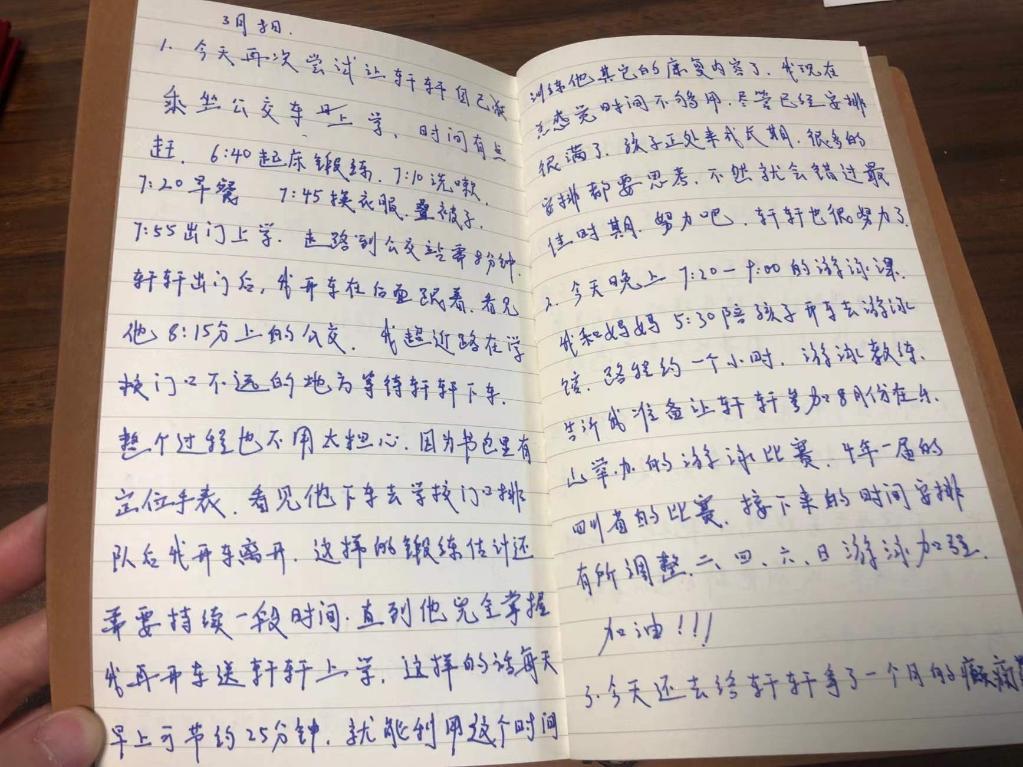 3月8日.
1. 今天再次尝试让轩轩自己
乘坐公交车上学, 时间有点
赶. 6:40起床锻练. 7:10洗嗽.
7:20早餐 7:45换衣服.叠被子.
7:55出门上学. 走路到公交站需8分钟.
轩轩出门后, 我开车在后面跟着. 看见
他8:15分上的公交. 我超近路在学
校门口不远的地方等待轩轩下车.
整个过程也不用太担心. 因为书包里有
定位手表. 看见他下车去学校门口排
队后我开车离开. 这样的锻练估计还
需要持续一段时间. 直到他完全掌握
我再开车送轩轩上学. 这样的话每天
早上可节约25分钟. 就能利用这个时间
训练他其它的康复内容了. 我现在
总感觉时间不够用. 尽管已经安排
很满了. 孩子正处来式长期. 很多的
安排都要思考. 不然就会错过最
佳时期. 努力吧. 轩轩也很努力了
2. 今天晚上7:20—9:00的游泳课.
我和妈妈5:30陪孩子开车去游泳
馆. 路程约一个小时. 游泳教练.
告诉我准备让轩轩参加8月份在乐.
山举办的游泳比赛. 4年一届的
四川省的比赛. 接下来的时间安排
有所调整. 二、四、六、日游泳加强.
加油!!!
3.今天还去给轩轩拿了一个月的癫痫